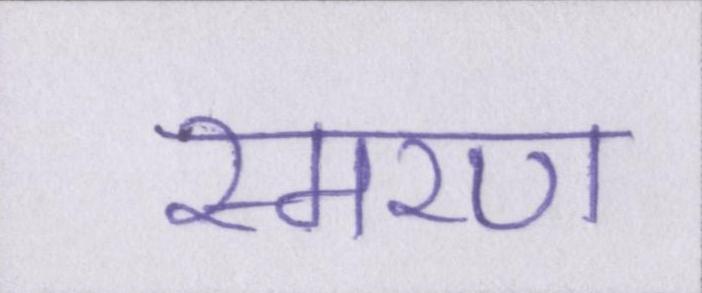 स्मरण